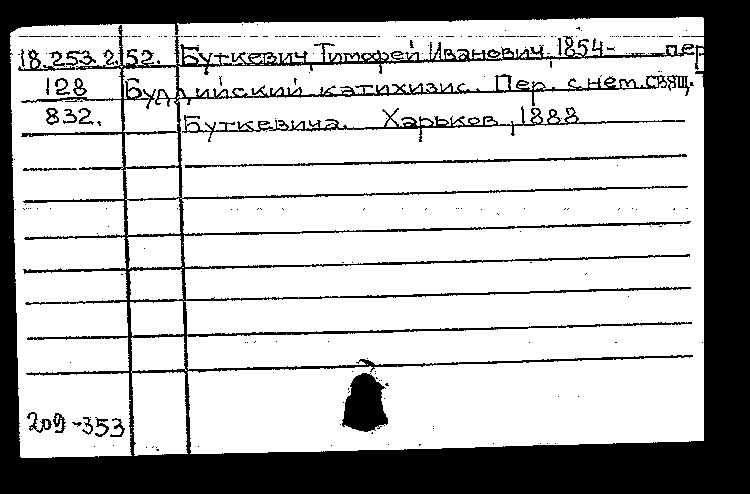 18.253.2.52. Буткевич, Тимофей Иванович, 1854- пер
128 Буддийский катихизис. Пер. с нем. свящ. Т
832. Буткевича. Харьков, 1888
209-353